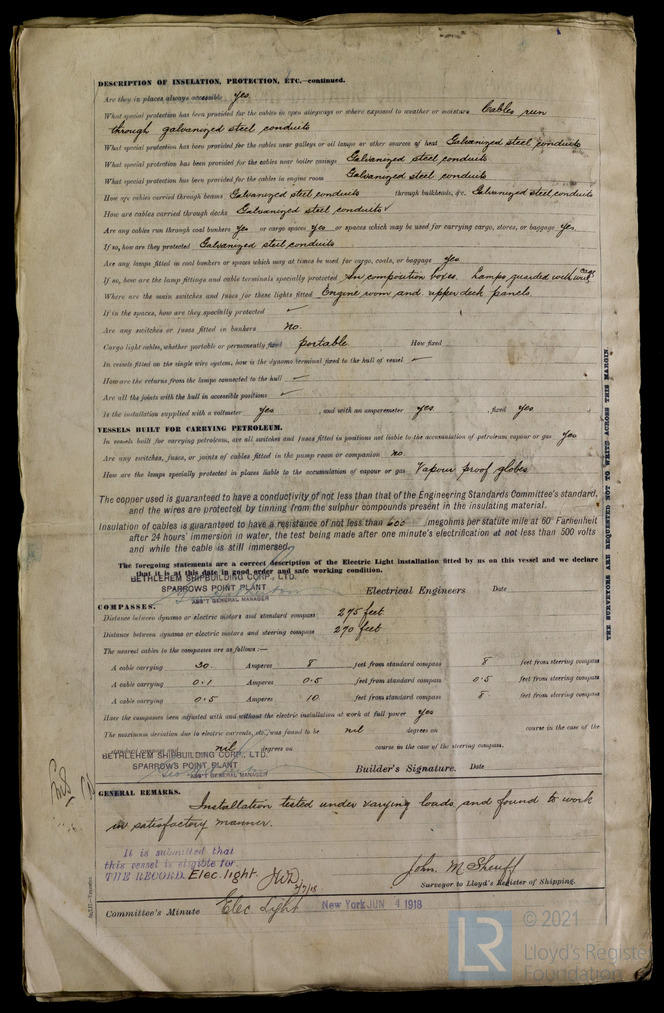 DESCRIPTION OF INSULATION, PROTECTION, ETC.—continued.
Are they in places always accessible yes
What special protection has been provided for the cables in open alleyways or where exposed to weather or moisture Cables run
through galvanized steel conduits
What special protection has been provided for the cables near galleys or oil lamps or other sources of heat Galvanized steel conduits
What special protection has been provided for the cables near boiler casings Galvanized steel conduits
What special protection has been provided for the cables in engine room Galvanized steel conduits
How are cables carried through beams Galvanized steel conduits through bulkheads, &c. Galvanized steel conduits
How are cables carried through decks Galvanized steel conduits ✓
Are any cables run through coal bunkers yes or cargo spaces yes or spaces which may be used for carrying cargo, stores, or baggage yes
If so, how are they protected Galvanized steel conduits
Are any lamps fitted in coal bunkers or spaces which may at times be used for cargo, coals, or baggage yes
If so, how are the lamp fittings and cable terminals specially protected In composition boxes. Lamps guarded with wire cage
Where are the main switches and fuses for these lights fitted Engine room and upper deck panels.
If in the spaces, how are they specially protected ✓
Are any switches or fuses fitted in bunkers no.
Cargo light cables, whether portable or permanently fixed portable How fixed
In vessels fitted on the single wire system, how is the dynamo terminal fixed to the hull of vessel ✓
How are the returns from the lamps connected to the hull ✓
Are all the joints with the hull in accessible positions ✓
Is the installation supplied with a voltmeter yes , and with an amperemeter yes , fixed yes
VESSELS BUILT FOR CARRYING PETROLEUM.
In vessels built for carrying petroleum, are all switches and fuses fitted in positions not liable to the accumulation of petroleum vapour or gas yes
Are any switches, fuses, or joints of cables fitted in the pump room or companion no.
How are the lamps specially protected in places liable to the accumulation of vapour or gas Vapour proof globes
The copper used is guaranteed to have a conductivity of not less than that of the Engineering Standards Committee's standard,
and the wires are protected by tinning from the sulphur compounds present in the insulating material.
Insulation of cables is guaranteed to have a resistance of not less than 600 megohms per statute mile at 60° Farhenheit
after 24 hours' immersion in water, the test being made after one minute's electrification at not less than 500 volts
and while the cable is still immersed.
The foregoing statements are a correct description of the Electric Light installation fitted by us on this vessel and we declare
that it is at this date in good order and safe working condition.
BETHLEHEM SHIPBUILDING CORP., LTD.
SPARROWS POINT PLANT
Electrical Engineers Date
ASS'T GENERAL MANAGER
COMPASSES.
Distance between dynamo or electric motors and standard compass 275 feet
Distance between dynamo or electric motors and steering compass 270 feet
The nearest cables to the compasses are as follows:—
A cable carrying 30. Amperes 8 feet from standard compass 8 feet from steering compass
A cable carrying 0.1 Amperes 0.5 feet from standard compass 0.5 feet from steering compass
A cable carrying 0.5 Amperes 10. feet from standard compass 8 feet from steering compass
Have the compasses been adjusted with and without the electric installation at work at full power yes
The maximum deviation due to electric currents, etc., was found to be nil degrees on course in the case of the
standard compass and nil degrees on course in the case of the steering compass.
BETHLEHEM SHIPBUILDING CORP., LTD.
SPARROWS POINT PLANT
Builder's Signature. Date
ASS'T GENERAL MANAGER
GENERAL REMARKS.
Installation tested under varying loads and found to work
in satisfactory manner.
It is submitted that
this vessel is eligible for
THE RECORD. Elec. light.
John McSheriff
Surveyor to Lloyd's Register of Shipping.
Committee's Minute Elec Light New York JUN 4 1918
THE SURVEYORS ARE REQUESTED NOT TO WRITE ACROSS THIS MARGIN.
LR © 2021
Lloyd's Register
Foundation